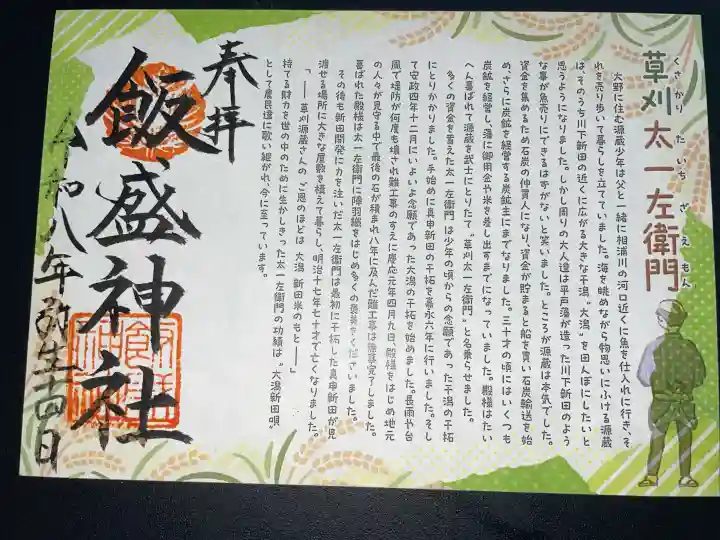 草刈太一左衛門
くさかり たいち ざえもん
大野に住む源蔵少年は父と一緒に相浦川の河口近くに魚を仕入れに行き、そ
れを売り歩いて暮らしを立てていました。海を眺めながら物思いにふける源蔵
は、そのうち川下新田の近くに広がる大きな干潟、“大潟”を田んぼにしたいと
思うようになりました。しかし周りの大人達は平戸藩が造った川下新田のよう
な事が魚売りにできるはずがないと笑いました。ところが源蔵は本気でした。
資金を集めるため石炭の仲買人になり、資金が貯まると船を買い石炭輸送を始
め、さらに炭鉱を経営する炭鉱主にまでなりました。三十才の頃にはいくつも
炭鉱を経営し、藩に御用金や米を差し出すまでになっていました。殿様はたい
へん喜ばれて源蔵を武士にとりたて“草刈太一左衛門”と名乗らせました。
多くの資金を蓄えた太一左衛門は少年の頃からの念願であった干潟の干拓
にとりかかりました。手始めに真申新田の干拓を嘉永六年に行いました。そし
て安政四年十二月にいよいよ念願であった大潟の干拓を始めました。長雨や台
風で堤防が何度も壊され難工事のすえに慶応元年四月九日、殿様をはじめ地元
の人々が見守る中で最後の石が積まれ八年に及んだ難工事は無事完了しました。
喜ばれた殿様は太一左衛門に陣羽織をはじめ多くの褒美をくださいました。
その後も新田開発に力を注いだ太一左衛門は最初に干拓した真申新田が見
渡せる場所に大きな屋敷を構えて暮らし、明治十七年七十才で亡くなりました。
「――草刈源蔵さんの ご恩のほどは 大潟 新田米のもと――」
持てる財力を世の中のために生かしきった太一左衛門の功績は、“大潟新田唄”
として農民達に歌い継がれ、今に至っています。
奉拝
飯盛神社
令和八年弥生十四日